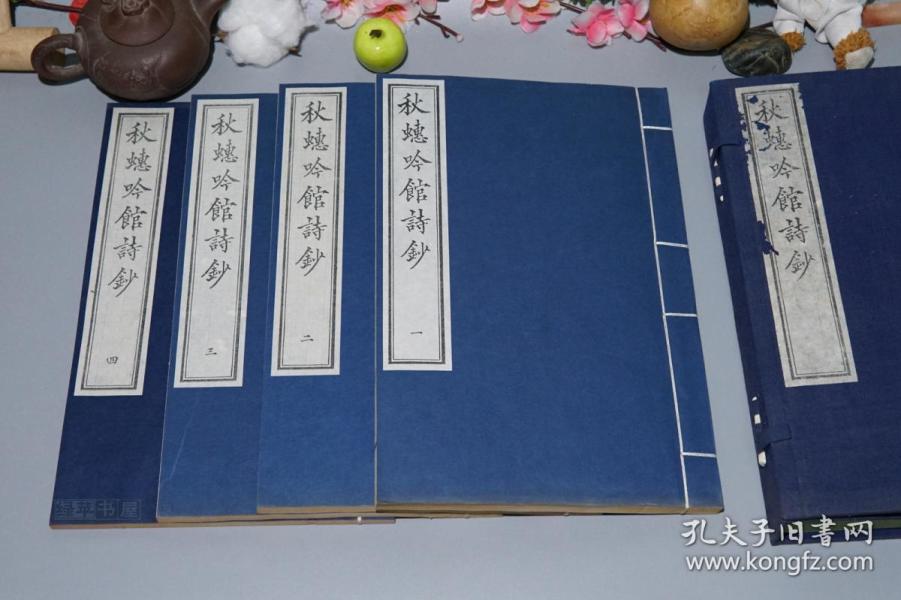 秋蟪吟館詩鈔
秋蟪吟館詩鈔 一
秋蟪吟館詩鈔 二
秋蟪吟館詩鈔 三
秋蟪吟館詩鈔 四
苹书屋
孔夫子旧書网
www.kongfz.com